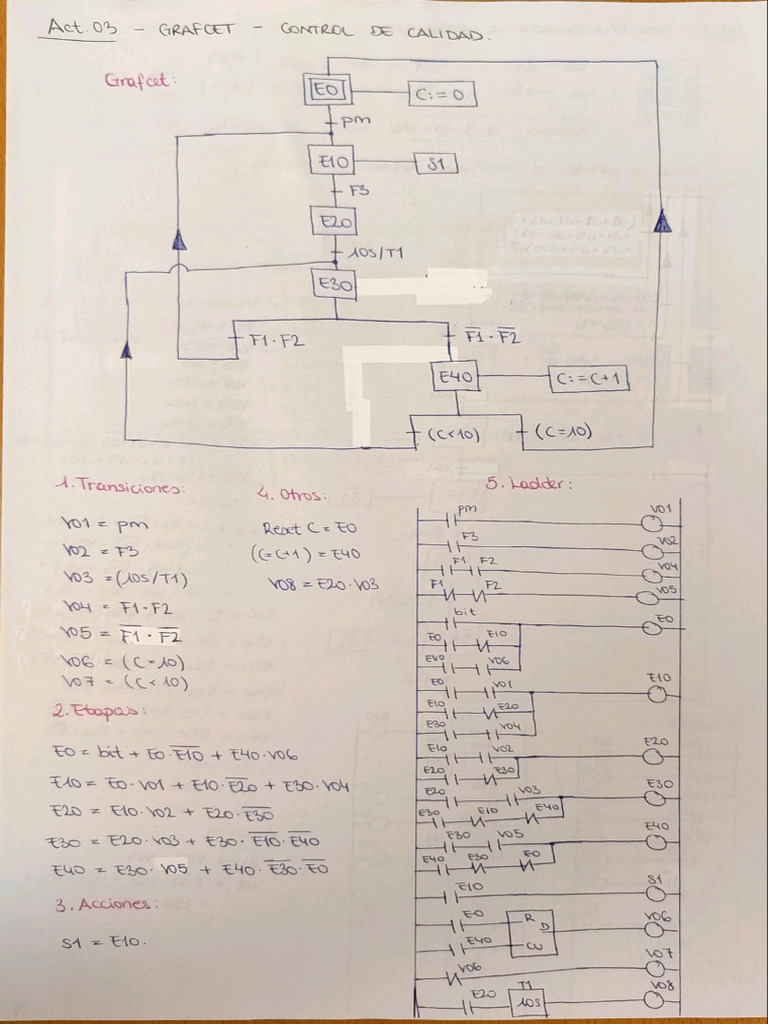 Act. 03 - GRAFCET - CONTROL DE CALIDAD.
Grafcet:
E0
C:=0
pm
E10
S1
F3
E20
10s/T1
E30
F1·F2
F̅1̅·F̅2̅
E40
C:=C+1
(C<10)
(C=10)
1. Transiciones:
V01 = pm
V02 = F3
V03 = (10s/T1)
V04 = F1·F2
V05 = F̅1̅·F̅2̅
V06 = (C=10)
V07 = (C<10)
2. Etapas:
E0 = bit + E0·E̅1̅0̅ + E40·V06
E10 = E0·V01 + E10·E̅2̅0̅ + E30·V04
E20 = E10·V02 + E20·E̅3̅0̅
E30 = E20·V03 + E30·E̅1̅0̅·E̅4̅0̅
E40 = E30·V05 + E40·E̅3̅0̅·E̅0̅
3. Acciones:
S1 = E10.
4. Otros:
Reset C = E0
(C=C+1) = E40
V08 = E20·V03
5. Ladder:
pm V01
F3 V02
F1 F2 V04
F1 F2 V05
bit E0
E0 E10
E40 V06
E0 V01 E10
E10 E20
E30 V04
E10 V02 E20
E20 E30
E20 V03 E30
E30 E10 E40
E30 V05 E40
E40 E30 E0
E10 S1
E0 R V06
D
E40 ω
V06 V07
E20 T1 V08
10s